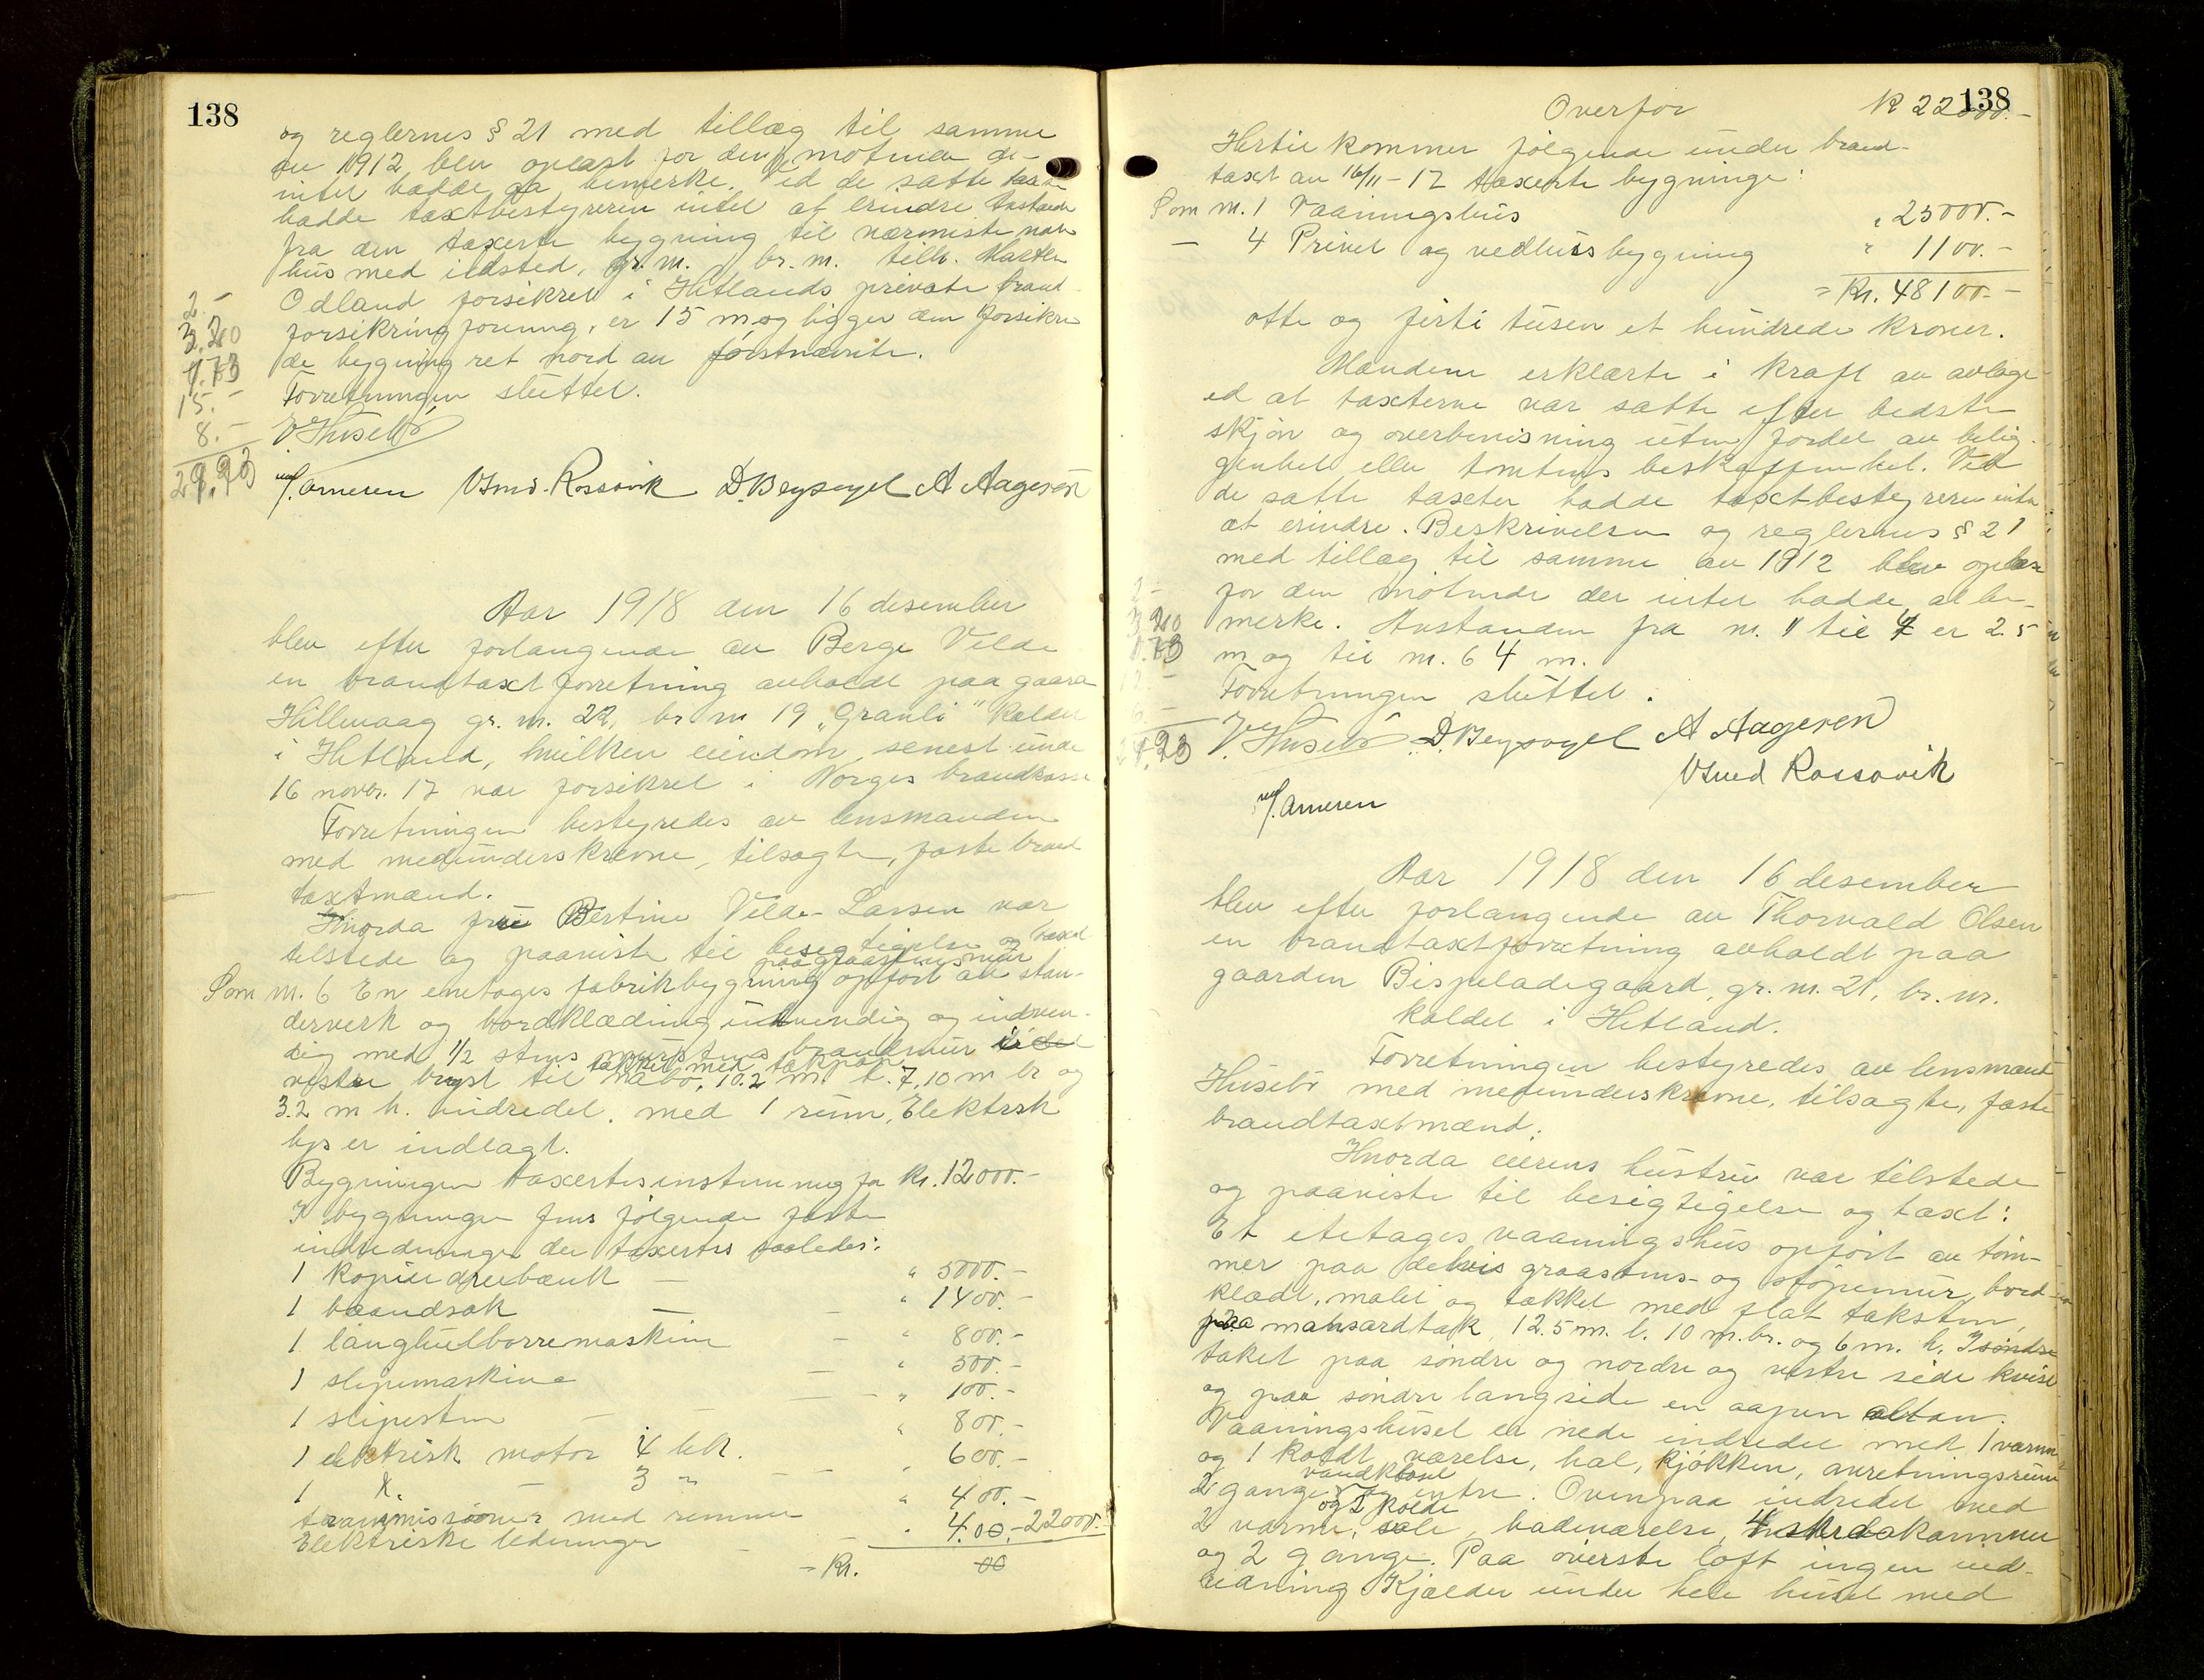 138
og reglernes § 21 med tillæg til samme
av 1912 blev oplæst for den motende der
intet hadde at bemerke. Ved de satte taxter
hadde taxtbestyreren intet at erindre. Avstanden
fra den taxerte bygning til nærmeste nabo
hus med ildsted, gr. nr. br. nr. tilh. Marten
Odland forsikret i Hetlands private brand-
forsikringforening, er 15 m og ligger den forsikre
de bygning ret nord av førstnævnte.
Forretningen sluttet.
2.-
3.20
1.73
15.-
8.-
29.93
V Husebø
J. Arnesen Osmd. Rossavik D. Bergsagel A Aagesen
Aar 1918 den 16 desember
blev efter forlangende av Berge Velde
en brandtaxtforretning avholdt paa gaarden
Hillevaag gr. nr. 22, br nr 19 "Granli" kaldet
i Hetland, hvilken eiendom senest under
16 novbr. 17 var forsikret i Norges brandkasse
Forretningen bestyredes av lensmanden
med medunderskrevne, tilsagte, faste brand
taxtmænd.
Hvorda frue Bertine Velde-Larsen var
tilstede og paaviste til besigtigelse og taxt
Som nr. 6 En enetages fabrikbygning paa graastensmur opført av stan-
derverk og bordklædning utvendig og indven-
dig med 1/2 stens murstens brandmur
vestre bryst til nabo, tækket med takpan 10.2 m l. 7.10 m br og
3.2 m h. indredet med 1 rum. Elektrisk
lys er indlagt.
Bygningen taxertes instemmig for kr. 12000.-
I bygningen fins følgende faste
indredninger der taxertes saaledes:
1 kopier dreebænk — " 5000.-
1 baandsak — " 1400.-
1 langhulborremaskine — " 800.-
1 slipemaskine — " 500.-
1 slipesten — " 100.-
1 elektrisk motor 4 hk. " 800.-
1 " 3 " " 600.-
transmissioner med remmer " 400.-
Elektriske ledninger — " 400.- 22000.-
- Kr. 00
138
Overfor K 22000.-
Hertil kommer følgende under brand-
taxt av 16/11-17 taxerte bygninger:
Som nr. 1 Vaaningshus " 25000.-
— 4 Privet og vedhusbygning " 1100.-
= Kr. 48100.-
otte og førti tusen et hundrede kroner.
Mændene erklærte i kraft av avlagt
ed at taxterne var satte efter bedste
skjøn og overbevisning uten fordel av belig-
genhet eller tomtens beskaffenhet. Ved
de satte taxter hadde taxtbestyreren intet
at erindre. Beskrivelsen og reglernes § 21
med tillæg til samme av 1912 blev oplæst
for den motende der intet hadde at be-
merke. Avstanden fra nr. 1 til 4 er 2.5
m og til nr. 6 4 m.
Forretningen sluttet.
2.-
3.20
1.73
24.93
V. Husebø D. Bergsagel A Aagesen
Osmd Rossavik
J. Arnesen
Aar 1918 den 16 desember
blev efter forlangende av Thorvald Olsen
en brandtaxtforretning avholdt paa
gaarden Bispeladegaard, gr. nr. 21, br. nr.
kaldet i Hetland.
Forretningen bestyredes av lensmand
Husebø med medunderskrevne, tilsagte, faste
brandtaxtmænd.
Hvorda eierens hustru var tilstede
og paaviste til besigtigelse og taxt:
Et etetages vaaningshus opført av tøm-
mer paa delvis graastens- og støpemur, bord-
klædt, malet og tækket med flat taksten,
paa mansardtak, 12.5 m. l. 10 m. br. og 6 m. h. I søndre
taket paa søndre og nordre og vestre side kvist
og paa søndre langside en aapen altan.
Vaaningshuset er nede indredet med 1 varme
og 1 koldt værelse, hal, kjøkken, anretningsrum
2 gange vandkloset og entre. Ovenpaa indredet med
2 varme, og 2 kolde sale, badeværelse, kammer
og 2 gange. Paa øverste loft ingen ind-
redning. Kjælder under hele huset med